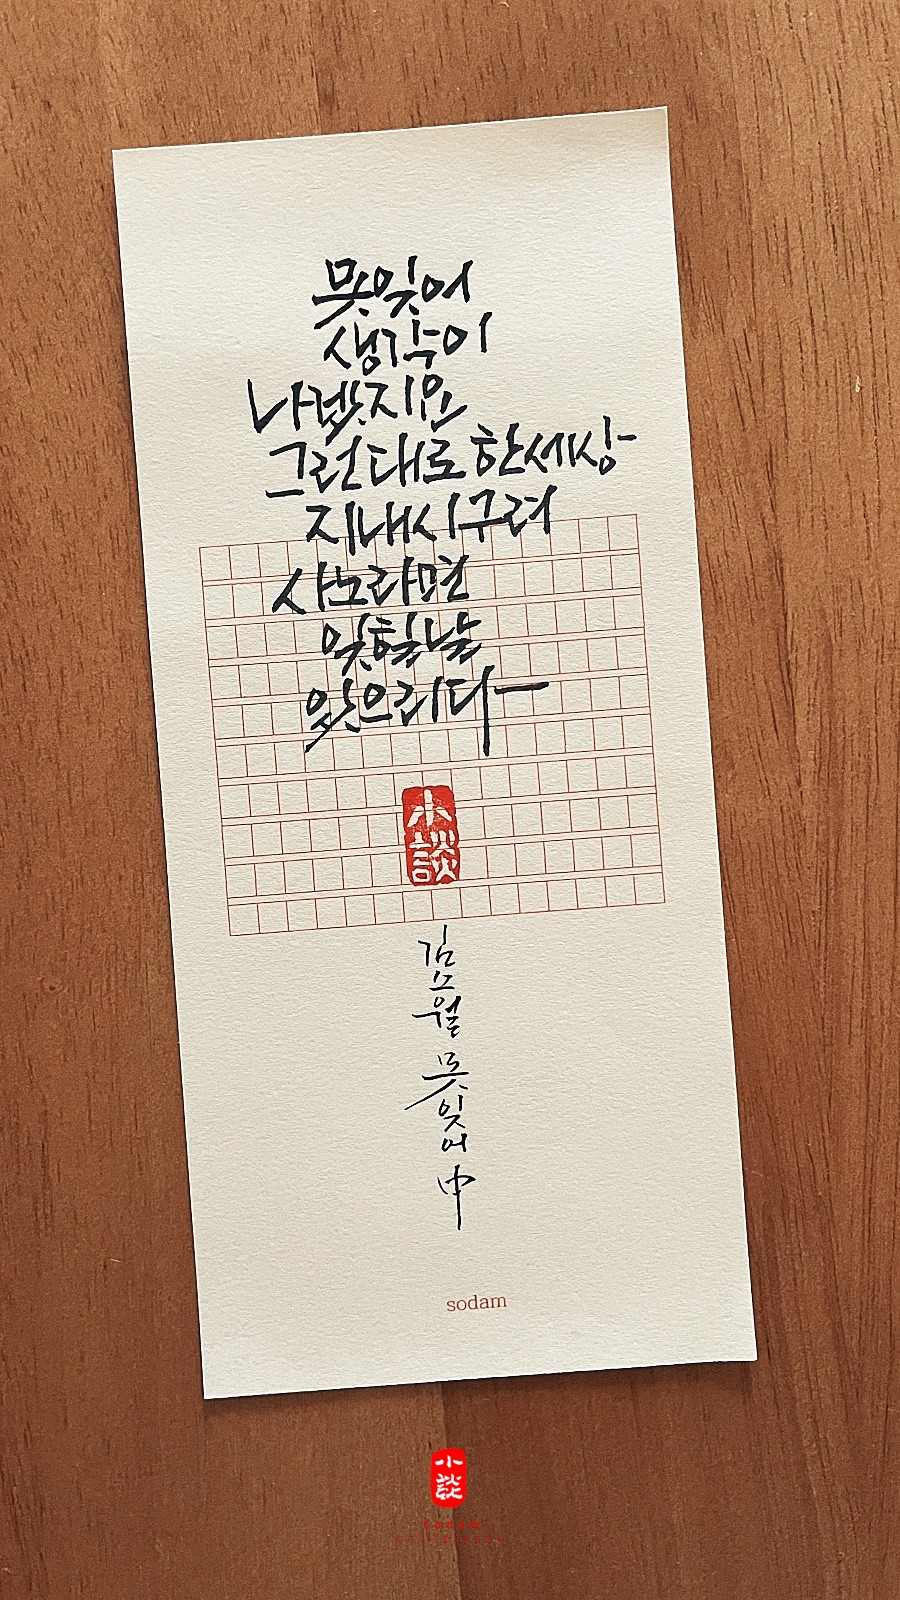 못잊어
생각이
나겠지요
그런대로 한세상
지내시구려
사노라면
잊힐날
있으리다
小談
김소월 못잊어 中
sodam
小談
sodam